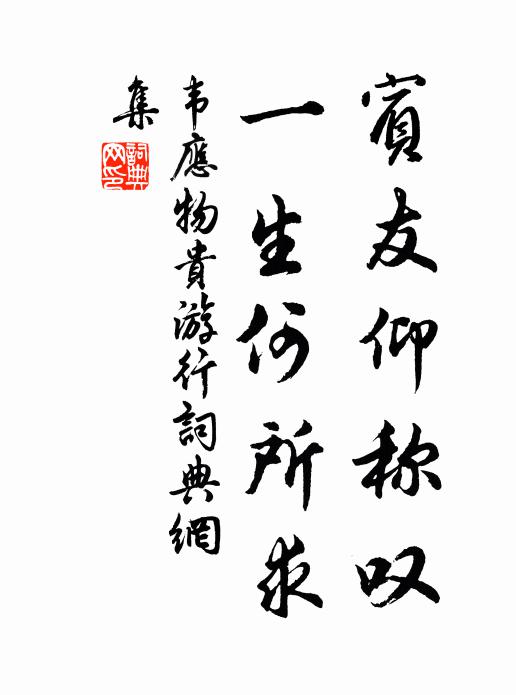 賓友仰称叹
一生何所求
韦應物貴游行詞典網
集
詞典
网印